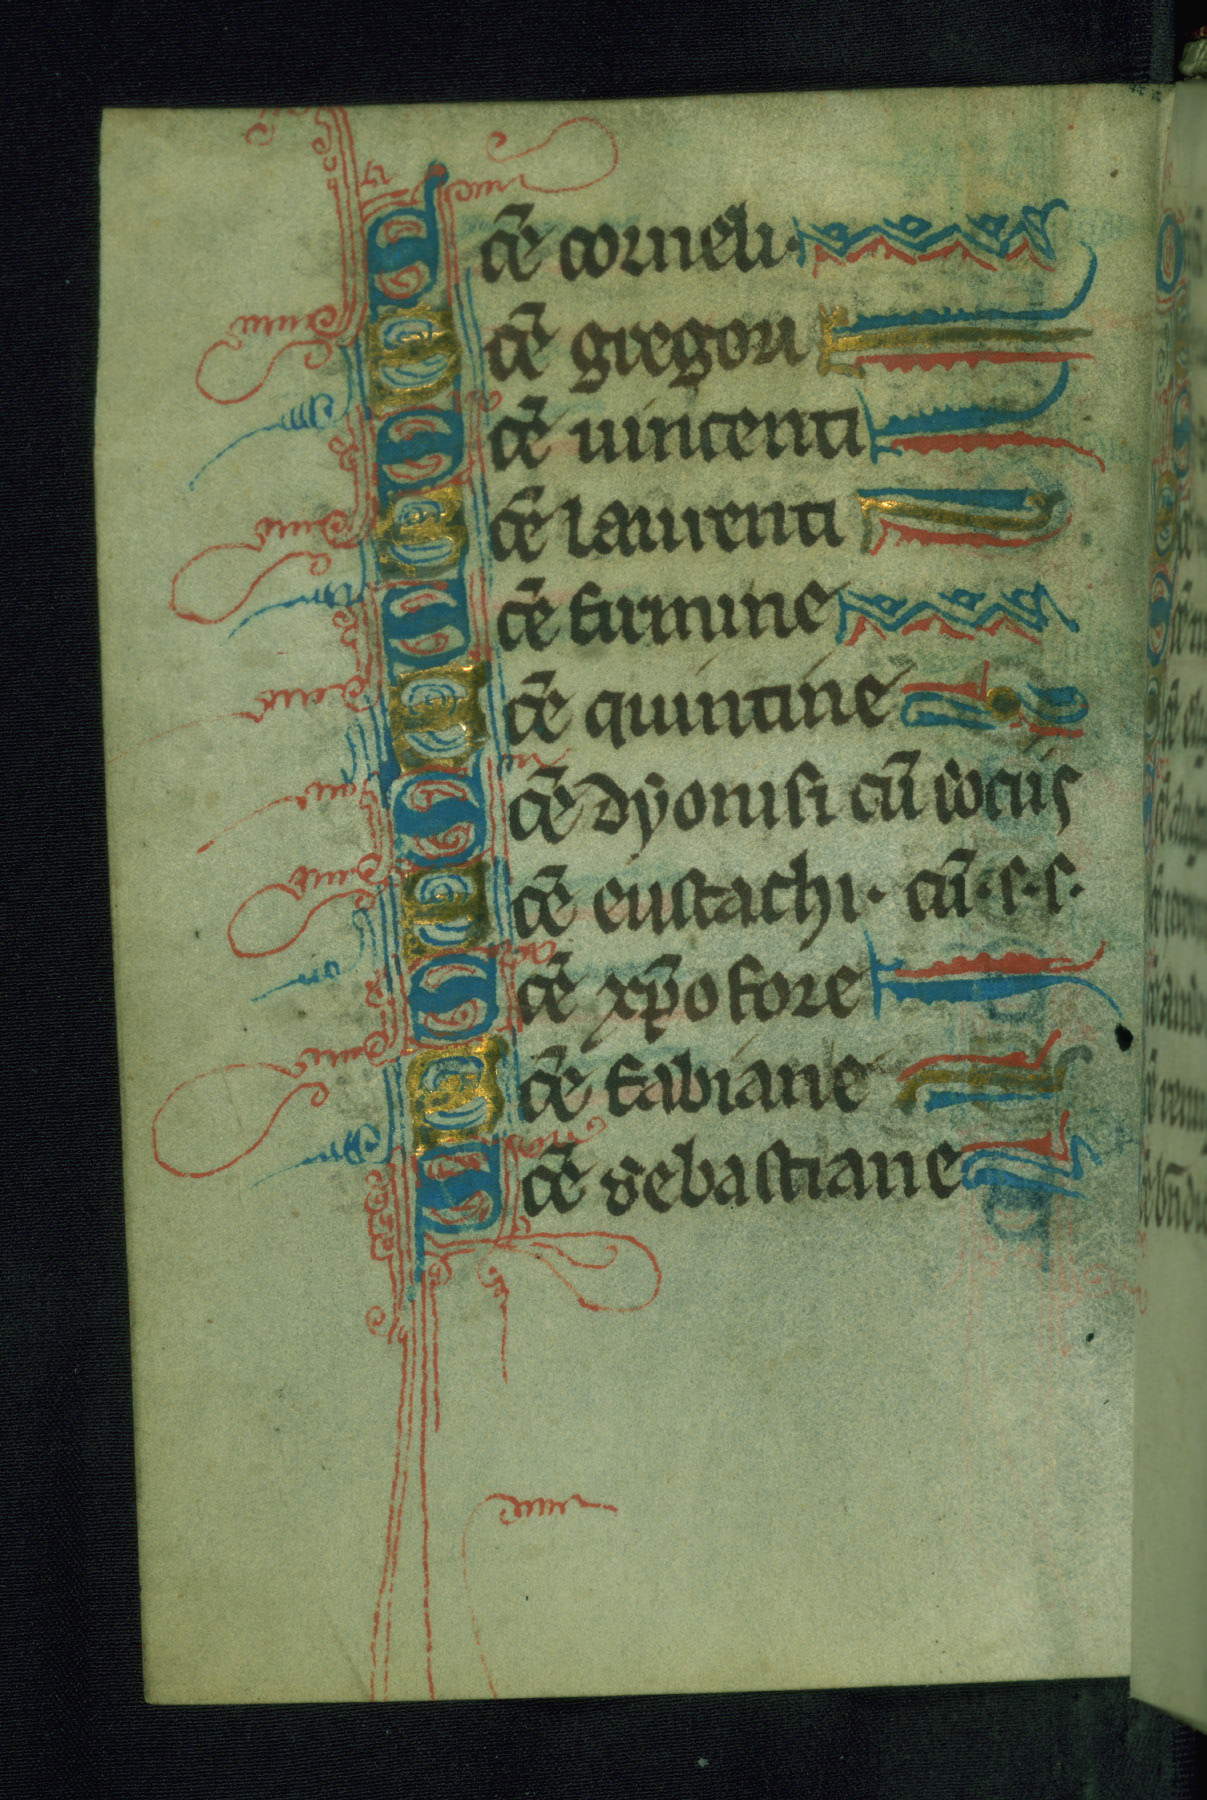 Sc̄e corneli·
Sc̄e gregori
Sc̄e uincenti
Sc̄e laurenti
Sc̄e firmine
Sc̄e quintine
Sc̄e dyonisi cū sociis
Sc̄e eustachi· cū·s·s·
Sc̄e xp̄ofore
Sc̄e fabiane
Sc̄e sebastiane